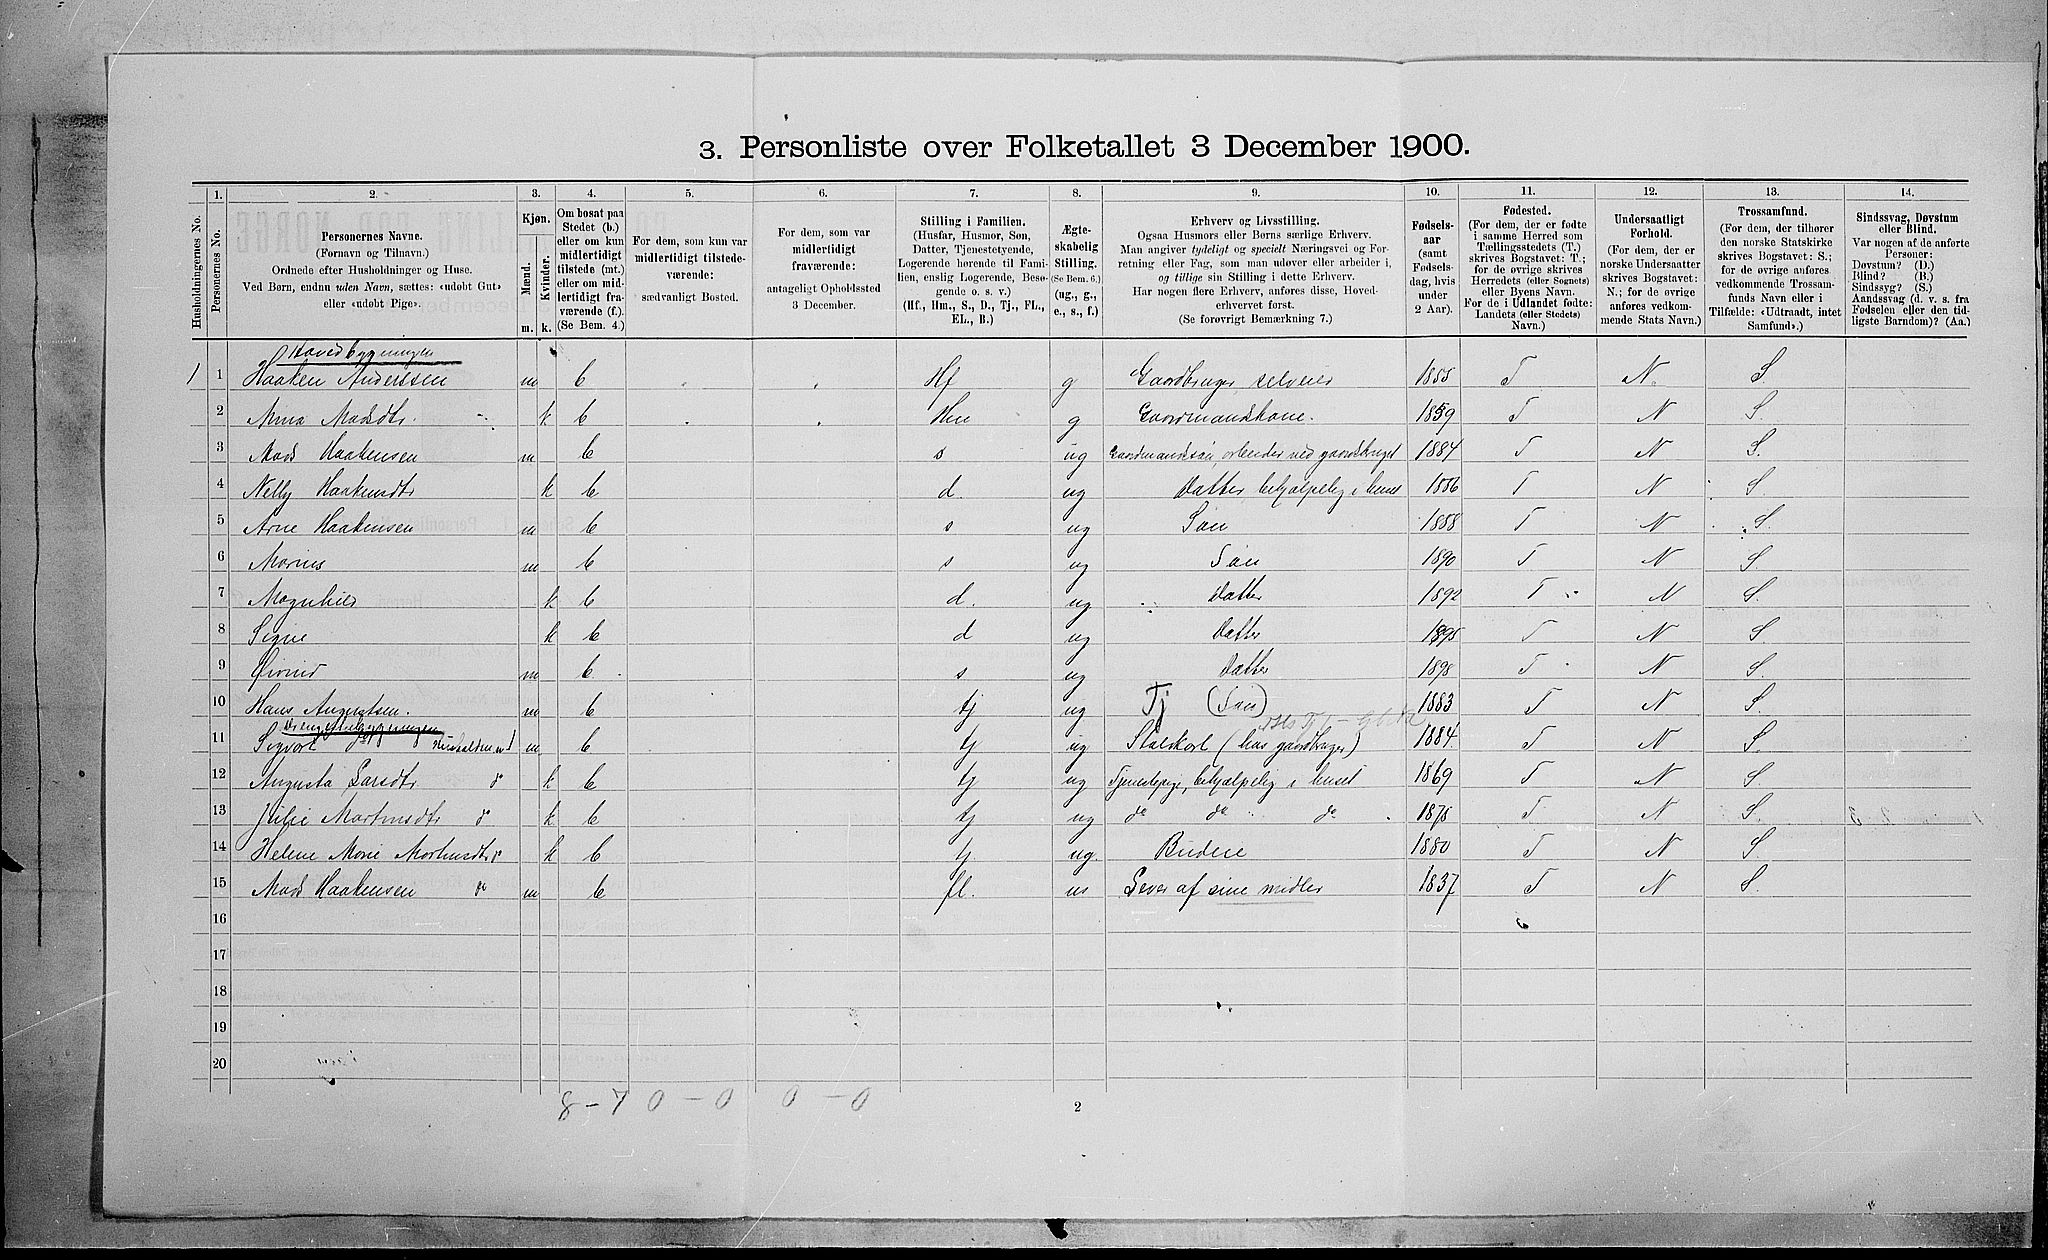 3. Personliste over Folketallet 3 December 1900.
1. 2. 3. 4. 5. 6. 7. 8. 9. 10. 11. 12. 13. 14.
Husholdningernes No.
Personernes No.
Personernes Navne.
(Fornavn og Tilnavn.)
Ordnede efter Husholdninger og Huse.
Ved Børn, endnu uden Navn, sættes: «udøbt Gut»
eller «udøbt Pige».
Kjøn.
Mænd.
Kvinder.
m. k.
Om bosat paa
Stedet (b.)
eller om kun
midlertidigt
tilstede (mt.)
eller om mid-
lertidigt fra-
værende (f.).
(Se Bem. 4.)
For dem, som kun var
midlertidigt tilstede-
værende:
sædvanligt Bosted.
For dem, som var
midlertidigt
fraværende:
antageligt Opholdssted
3 December.
Stilling i Familien.
(Husfar, Husmor, Søn,
Datter, Tjenestetyende,
Logerende hørende til Fami-
lien, enslig Logerende, Besø-
gende o. s. v.)
(Hf., Hm., S., D., Tj., FL.,
EL., B.)
Ægte-
skabelig
Stilling.
(Se Bem. 6.)
(ug., g.,
e., s., f.)
Erhverv og Livsstilling.
Ogsaa Husmors eller Børns særlige Erhverv.
Man angiver tydeligt og specielt Næringsvei og For-
retning eller Fag, som man udøver eller arbeider i,
og tillige sin Stilling i dette Erhverv.
Har nogen flere Erhverv, anføres disse, Hoved-
erhvervet først.
(Se forøvrigt Bemærkning 7.)
Fødsels-
aar
(samt
Fødsels-
dag, hvis
under
2 Aar).
Fødested.
(For dem, der er fødte
i samme Herred som
Tællingsstedets (T.)
skrives Bogstavet: T.;
for de øvrige skrives
Herredets (eller Sognets)
eller Byens Navn.
For de i Udlandet fødte:
Landets (eller Stedets)
Navn.)
Undersaatligt
Forhold.
(For dem, der er
norske Undersaatter
skrives Bogstavet:
N.; for de øvrige
anføres vedkom-
mende Stats Navn.)
Trossamfund.
(For dem, der tilhører
den norske Statskirke
skrives Bogstavet: S.;
for de øvrige anføres
vedkommende Trossam-
funds Navn eller i
Tilfælde: «Udtraadt, intet
Samfund».)
Sindssvag, Døvstum
eller Blind.
Var nogen af de anførte
Personer:
Døvstum? (D.)
Blind? (B.)
Sindssyg? (S.)
Aandssvag (d. v. s. fra
Fødselen eller den tid-
ligste Barndom)? (Aa.)
Hovedbygningen
1 1 Haaken Anderssen m b Hf g Gaardbruger, selveier 1855 T N. S.
2 Anna Madsdtr. k b Hm g Gaardmandskone. 1859 T N S.
3 Mads Haakensen m b s ug Gaardmandssøn, arbeider ved gaardsbruget 1884 T N S.
4 Nelly Haakensdtr k b d. ug Datter behjælpelig i huset 1886 T N S
5 Arne Haakensen m b s ug Søn 1888 T N S.
6 Marius m b s ug Søn 1890 T N S.
7 Magnhild k b d. ug Datter 1892 T N S.
8 Signe k b d ug Datter 1895 T N S
9 Øivind m b. s ug Datter 1898 T N S.
10 Hans Augustsen. m b tj ug Tj (Søn) 1883 T N S.
11 Sigvart m b tj ug Staldkarl (hos gaardbruger) 1884. T N S.
12 Augusta Larsdtr do k b tj ug Tjenestepige, behjælpelig i huset 1869 T N S.
13 Julie Martinsdtr do k b tj ug do do do 1878 T N S.
14 Helene Marie Martinsdtr do k b tj ug. Budeie 1880 T N S
15 Mads Haakensen do m b fl. ug Lever af sine midler 1837 T N S.
16
17
18
19
20
8 – 7 0 – 0 0 – 0
2